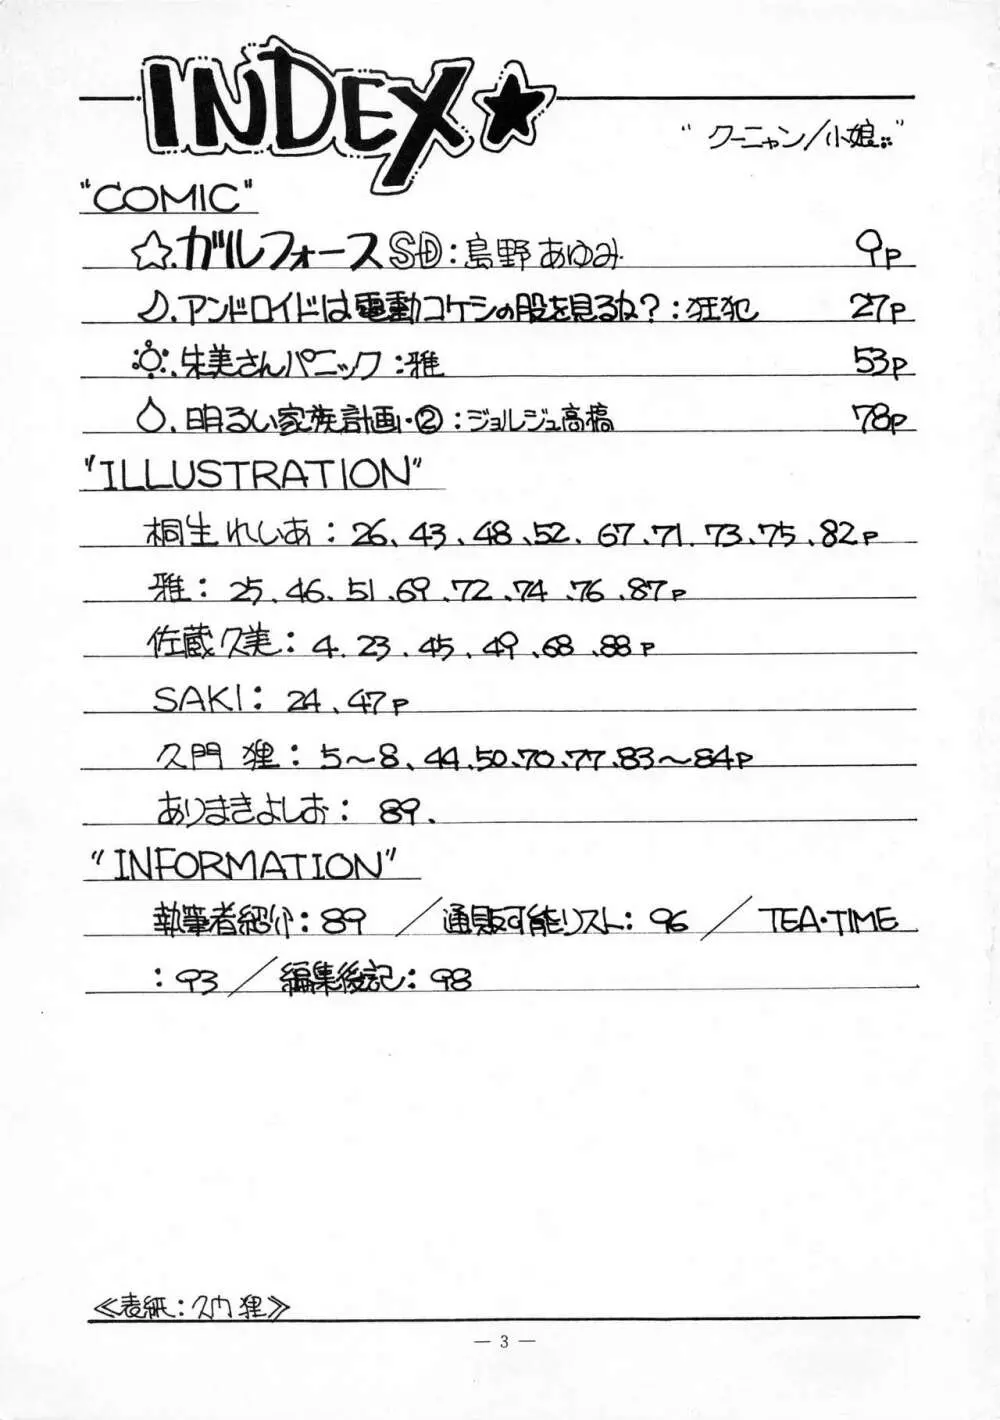 INDEX★
"クーニャン/小娘"
"COMIC"
☆.ガルフォースSD:島野あゆみ 9p
♪.アンドロイドは電動コケシの股を見るか?:狂犯 27p
朱美さんパニック:雅 53p
明るい家族計画・②:ジョルジュ高橋 78p
"ILLUSTRATION"
桐生れいあ:26、43、48、52、67、71、73、75、82p
雅:25、46、51、69、72、74、76、87p
佐蔵久美:4、23、45、49、68、88p
SAKI:24、47p
久門 狸:5〜8、44、50、70、77、83〜84p
ありまきよしお:89.
"INFORMATION"
執筆者紹介:89 /通販可能リスト:96 / TEA・TIME
:93 /編集後記:98
≪表紙:久門 狸≫
— 3 —